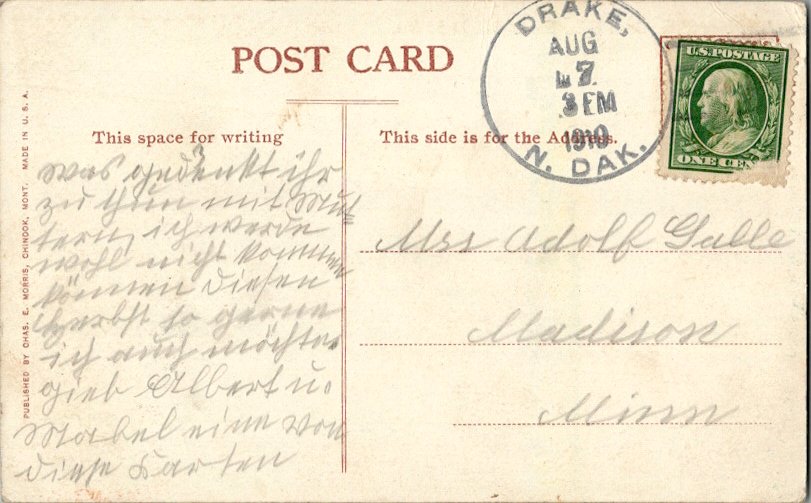 POST CARD
DRAKE,
AUG
7
3 PM
1910
N. DAK.
U.S. POSTAGE
ONE CEN
This space for writing
This side is for the Address.
PUBLISHED BY CHAS. E. MORRIS, CHINOOK, MONT. MADE IN U. S. A.
was gedenkt ihr
zu thun mit Mut=
tern, ich werde
wohl nicht kommen
können diesen
Herbst so gerne
ich auch möchte.
gieb Albert u.
Mabel eine von
diese Karten
Mrs Adolf Galle
Madison
Minn